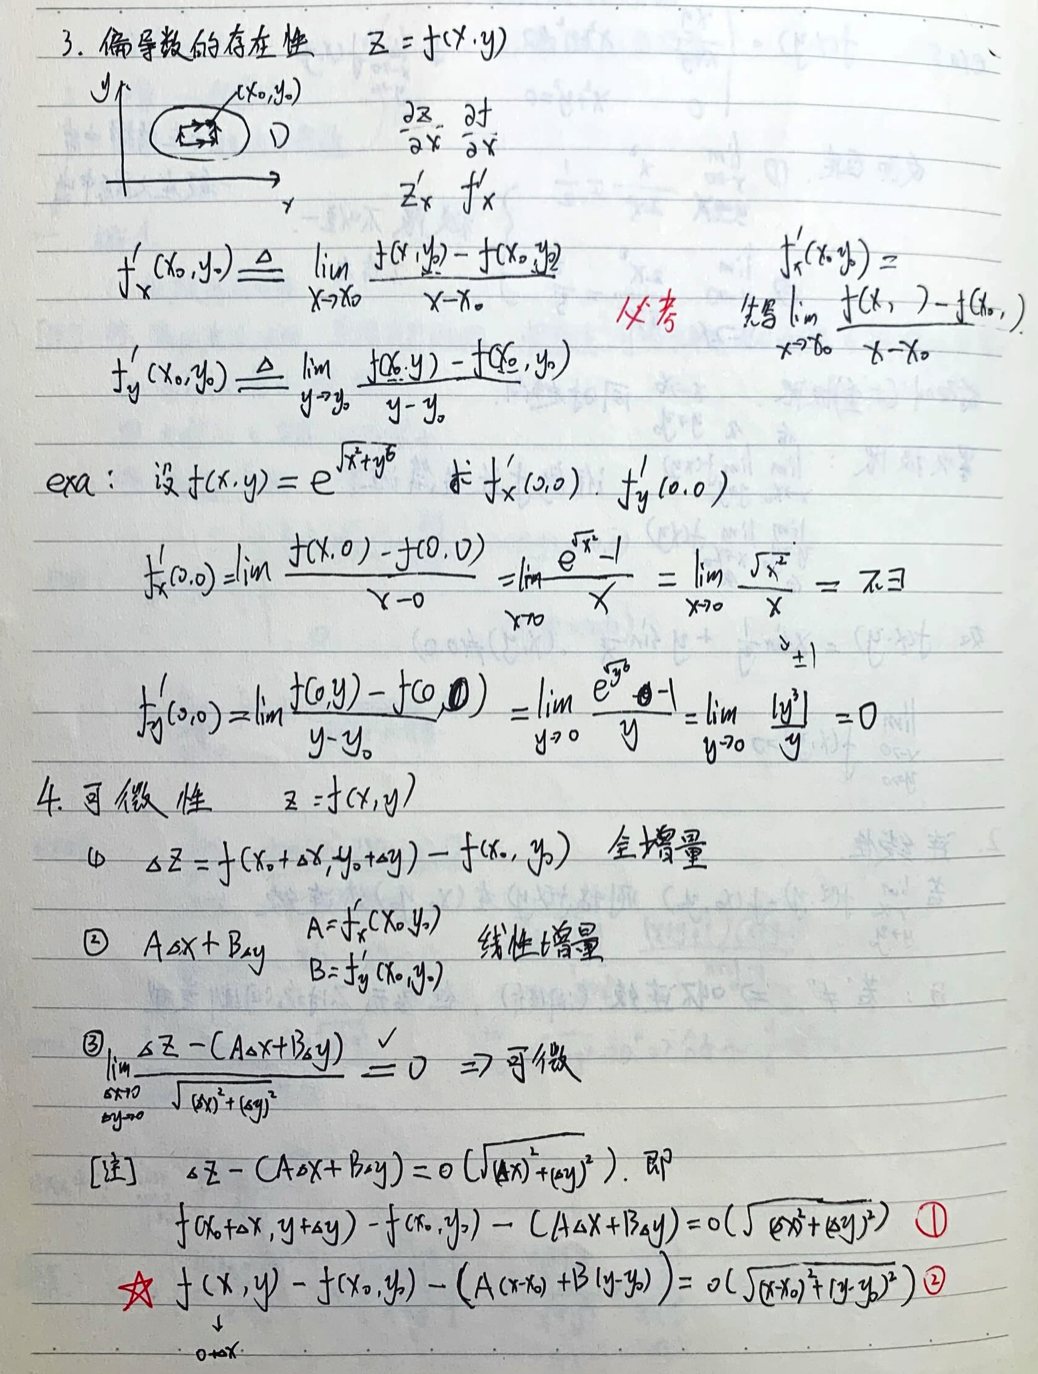 3. 偏导数的存在性 z = f(x.y)
y (x₀,y₀) D x
∂z/∂x ∂f/∂x
z'ₓ f'ₓ
f'ₓ(x₀,y₀) ≜ lim_{x→x₀} (f(x,y₀) - f(x₀,y₀))/(x-x₀)
f'ᵧ(x₀,y₀) ≜ lim_{y→y₀} (f(x₀.y) - f(x₀,y₀))/(y-y₀)
必考
f'ₓ(x₀.y₀) =
先写 lim_{x→x₀} (f(x, ) - f(x₀, ))/(x-x₀)
exa: 设 f(x.y) = e^{√(x²+y⁶)} 求 f'ₓ(0,0). f'ᵧ(0.0)
f'ₓ(0,0) = lim (f(x,0) - f(0,0))/(x-0) = lim_{x→0} (e^{√x²} - 1)/x = lim_{x→0} √x²/x = 不∃
↘ ±1
f'ᵧ(0,0) = lim (f(0,y) - f(0,0))/(y-y₀) = lim_{y→0} (e^{√y⁶} - 1)/y = lim_{y→0} |y³|/y = 0
4. 可微性 z = f(x,y)
① ΔZ = f(x₀+Δx, y₀+Δy) - f(x₀, y₀) 全增量
② AΔx + BΔy A = f'ₓ(x₀.y₀) B = f'ᵧ(x₀,y₀) 线性增量
③ lim_{Δx→0 Δy→0} (ΔZ - (AΔx+BΔy))/√((Δx)²+(Δy)²) = 0 ✓ ⇒ 可微
[注] ΔZ - (AΔx+BΔy) = o(√((Δx)²+(Δy)²)). 即
f(x₀+Δx, y+Δy) - f(x₀,y₀) - (AΔx+BΔy) = o(√((Δx)²+(Δy)²)) ①
☆ f(x,y) - f(x₀,y₀) - (A(x-x₀)+B(y-y₀)) = o(√((x-x₀)²+(y-y₀)²)) ②
↓
0+Δx